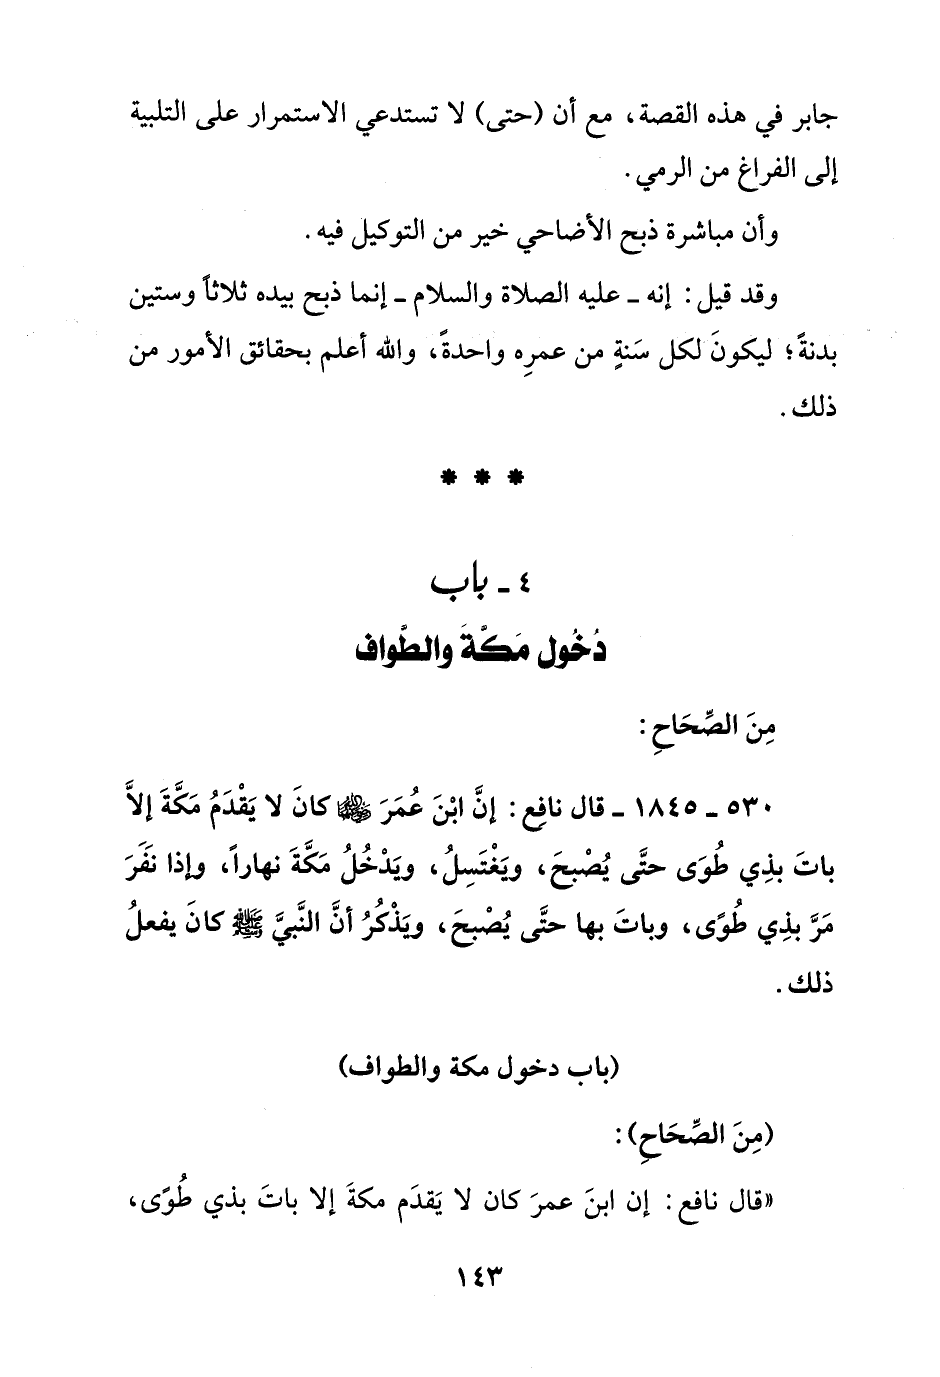 جابر في هذه القصة، مع أن (حتى) لا تستدعي الاستمرار على التلبية
إلى الفراغ من الرمي.
وأن مباشرة ذبح الأضاحي خير من التوكيل فيه.
وقد قيل: إنه ـ عليه الصلاة والسلام ـ إنما ذبح بيده ثلاثاً وستين
بدنةً؛ ليكونَ لكل سَنةٍ من عمرِه واحدةً، والله أعلم بحقائق الأمور من
ذلك.
* * *
٤ ـ باب
دُخُول مَكَّةَ والطَّواف
مِنَ الصِّحَاحِ:
٥٣٠ ـ ١٨٤٥ ـ قال نافِع: إنَّ ابْنَ عُمَرَ ﵁ كانَ لا يَقْدَمُ مَكَّةَ إلاَّ
باتَ بذِي طُوَى حتَّى يُصْبحَ، ويَغْتَسِلُ، ويَدْخُلُ مَكَّةَ نهاراً، وإذا نَفَرَ
مَرَّ بذِي طُوًى، وباتَ بها حتَّى يُصْبحَ، ويَذْكُرُ أنَّ النَّبيَّ ﷺ كانَ يفعلُ
ذلك.
(باب دخول مكة والطواف)
(مِنَ الصِّحَاحِ):
«قال نافع: إن ابنَ عمرَ كان لا يَقدَم مكةَ إلا باتَ بذي طُوًى،
١٤٣